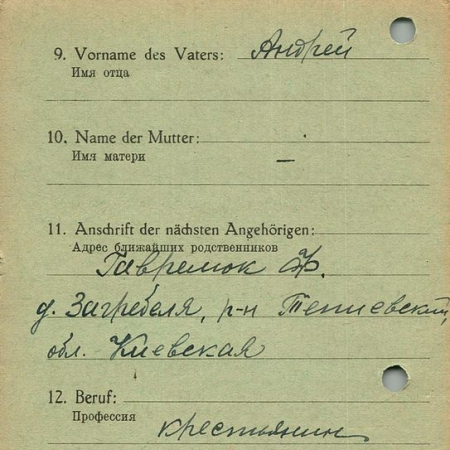 9. Vorname des Vaters: Андрей
Имя отца
10. Name der Mutter:
Имя матери —
11. Anschrift der nächsten Angehörigen:
Адрес ближайших родственников
Гаврелюк
д. Загребеля, р-н
обл. Киевская
12. Beruf:
Профессия
крестьянин